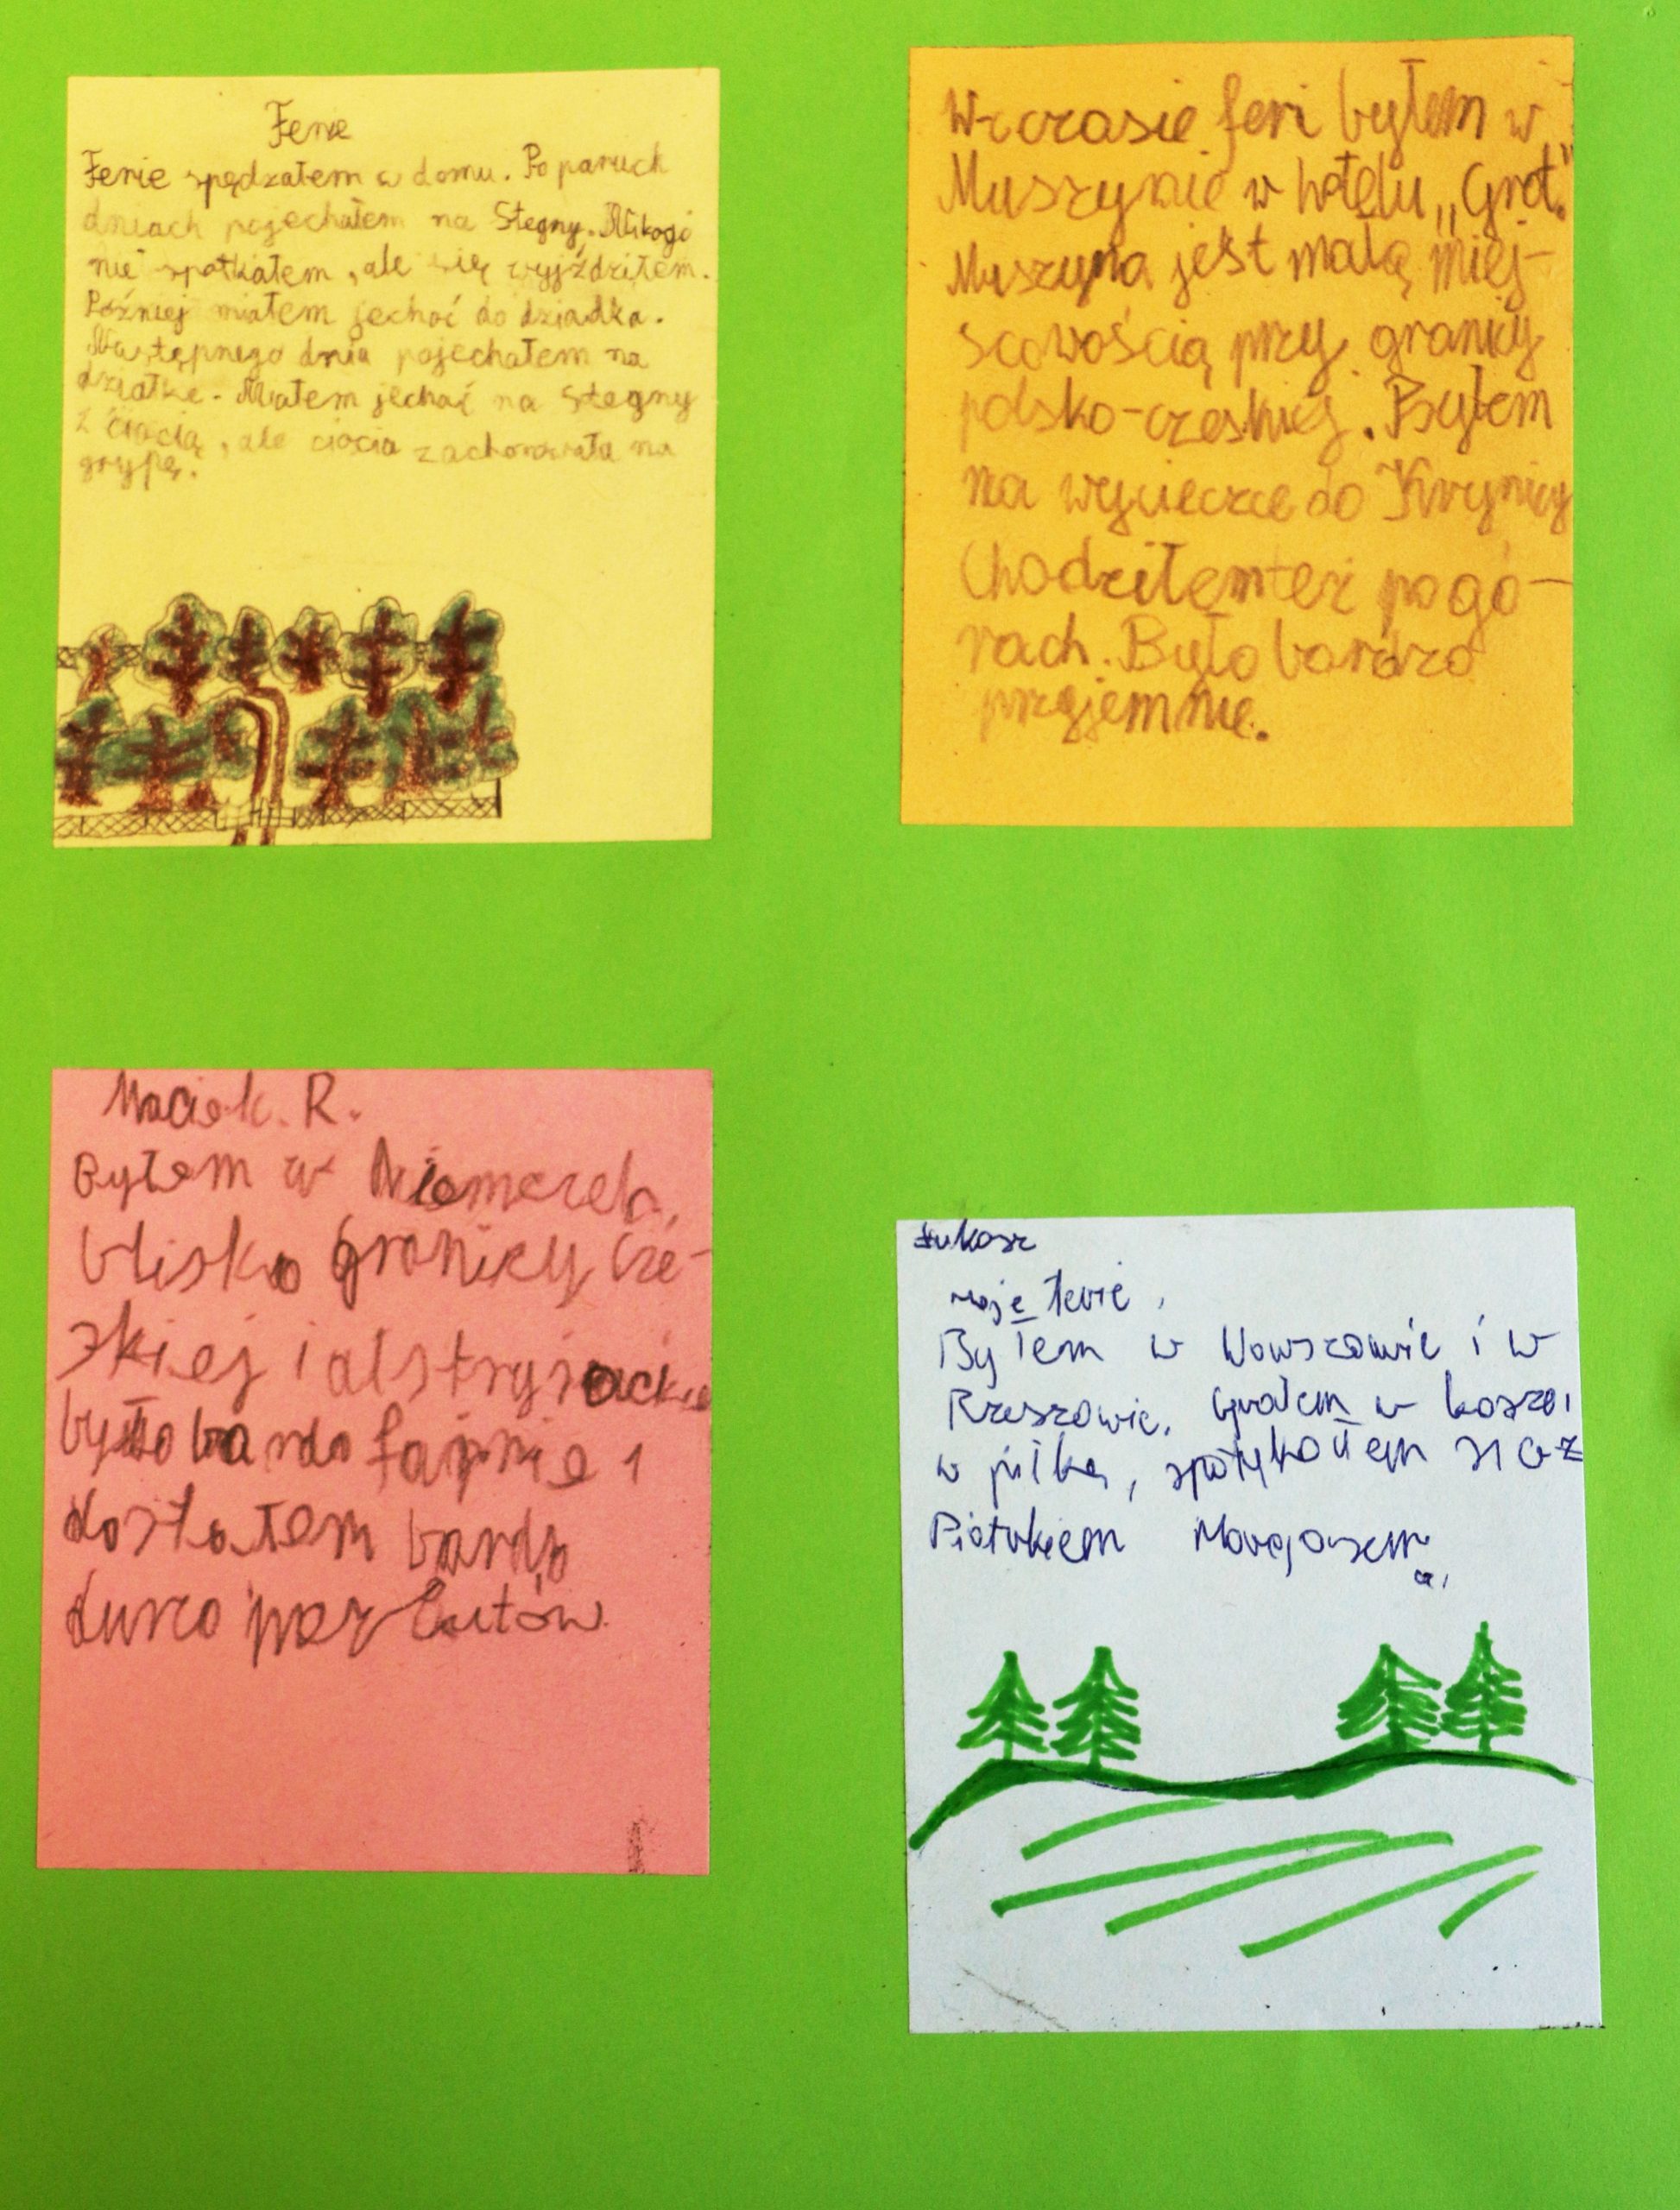 Ferie
Ferie spędzałem w domu. Po paruch
dniach pojechałem na Stegny. Nikogo
nie spotkałem, ale się wyjździłem.
Później miałem jechać do dziadka.
Następnego dnia pojechałem na
działkę. Miałem jechać na Stegny
z ciocią, ale ciocia zachorowała na
grypę.
W czasie feri byłem w
Muszynie w hotelu „Grot."
Muszyna jest małą miej-
scowością przy granicy
polsko-czeskiej. Byłem
na wycieczce do Krynicy
Chodziłem też po gó-
rach. Było bardzo
przyjemnie.
Maciek. R.
Byłem w Niemczech,
blisko granicy Cze-
skiej i alstryjackie
było bardo fajnie i
dostałem bardo
dużo prezętów
Łukasz
moje ferie.
Byłem w Warszawie i w
Rzeszowie. Grałem w kosza i
w piłkę, spotykałem się z
Piotrkiem